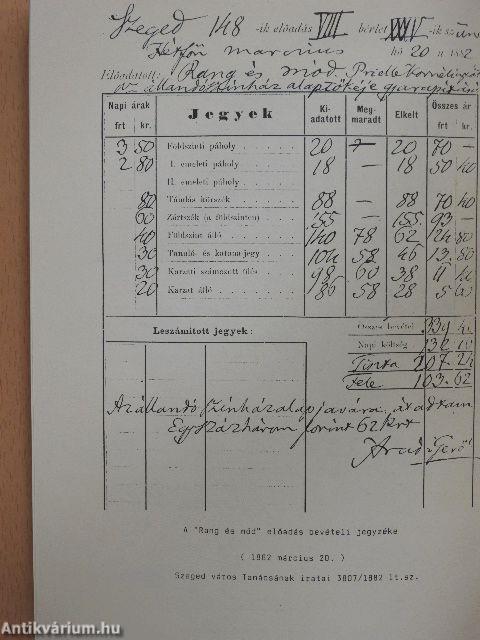 Szeged 148 -ik előadás VIII bérlet XXXIV -ik szám
Hétfőn március hó 20 n 1882
Előadatott: Rang és mód. Prielle Kornéliával
állandó színház alaptőkéje gyarapítására
Napi árak Jegyek Ki- Meg- Elkelt Összes ár
frt kr. adatott maradt frt kr.
3 50 Földszinti páholy . . . . . 20 — 20 70 —
2 80 I. emeleti páholy . . . . . 18 — 18 50 40
II. emeleti páholy . . . . .
80 Támlás körszék . . . . . 88 — 88 70 40
60 Zártszék (a földszinten) . . . . 155 — 155 93 —
40 Földszint álló . . . . . 140 78 62 24 80
30 Tanuló- és katona-jegy . . . . 104 58 46 13 80
30 Karzati számozott ülés . . . . 98 60 38 11 40
20 Karzat álló . . . . . 86 58 28 5 60
Leszámított jegyek:
Összes bevétel 339 40
Napi költség 132 16
Tiszta 207 24
Fele 103. 62
Az állandó színházalap javára átadtam
Egyszázhárom forint 62 krt
Aradi Gerő
A "Rang és mód" előadás bevételi jegyzéke
( 1882 március 20. )
Szeged város Tanácsának iratai 3807/1882 lt.sz.
Antikvárium.hu